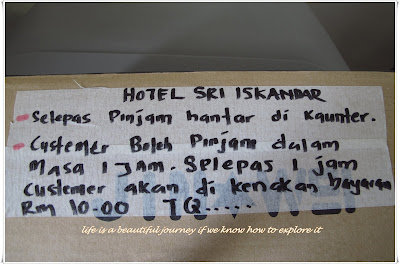 HOTEL SRI ISKANDAR
- Selepas Pinjam hantar di Kaunter.
- Custemer Boleh Pinjam dalam
Masa 1 JAM. Selepas 1 jam
Custemer akan di kenakan bayaran
RM 10.00 TQ.....
life is a beautiful journey if we know how to explore it